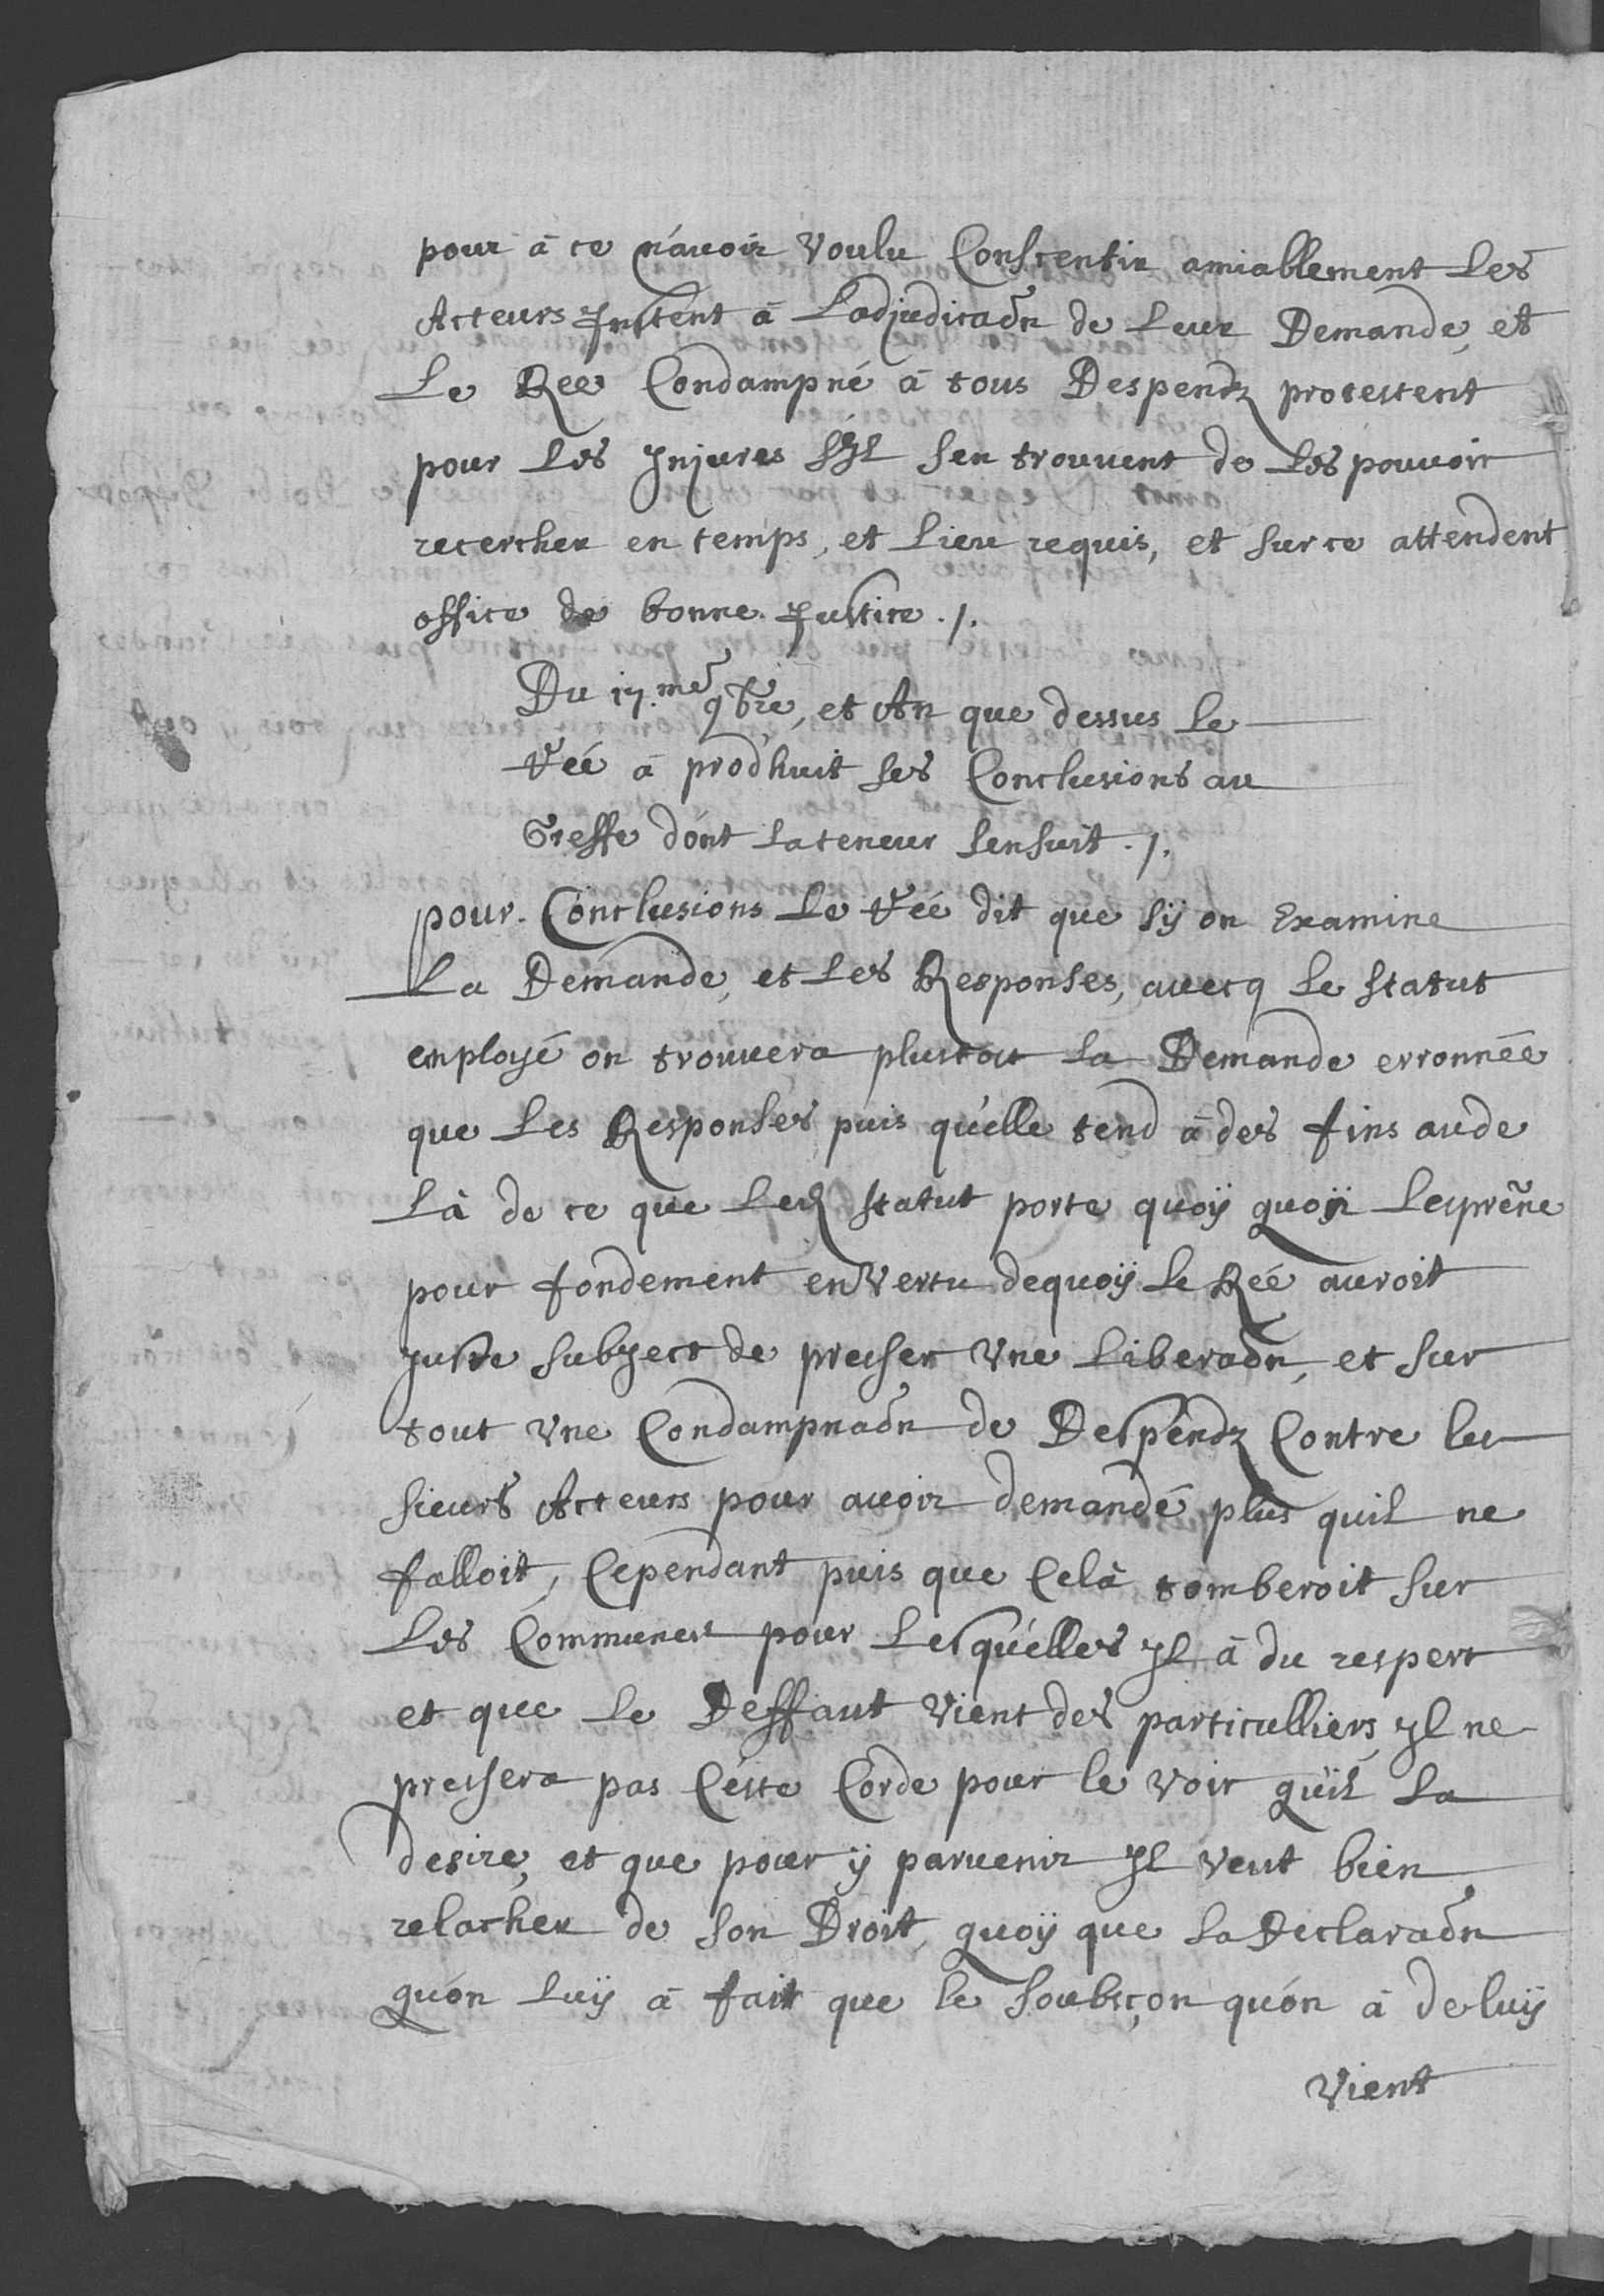 pour à ce n'auoir Voulu Conscentir amiablement Les
Acteurs Jnstent à L'adjudicaõn de Leur Demande, et
Le Reé Condampné à tous Despendz protestent
pour Les Jnjures s'Jl s'en trouuent de Les pouuoir
recercher en temps, et Lieu requis, et sur ce attendent
office de bonne Justice ./.
Du 17.me 9bre, et An que dessus le
Reé à prodhuit ses Conclusions au
Greffe dont La teneur s'ensuit ./.
pour Conclusions Le Reé dit que sÿ on Examine
La Demande, et Les Responses, auecq Le statut
employé on trouuera plustost La Demande erronnée
que Les Responses puis qu'elle tend à des fins au de
Là de ce que Led statut porte quoÿ qu'on Le preñe
pour fondement en Vertu dequoÿ Le Reé auroit
juste subject de presser Vne Liberaõn, et sur
tout Vne Condampnaõn de Despendz Contre les
sieurs Acteurs pour auoir demandé plus quil ne
falloit, Cependant puis que Celà tomberoit sur
Les Communes pour Lesqu'elles Jl à du respect
et que Le Deffaut Vient des particulliers Jl ne
pressera pas Ceste Corde pour le voir qu'il La
desire, et que pour ÿ paruenir Jl Veut bien
relacher de son Droit, quoÿ que La Declaraõn
qu'on Luÿ à fait que le soubsçon qu'on à de luÿ
Vient